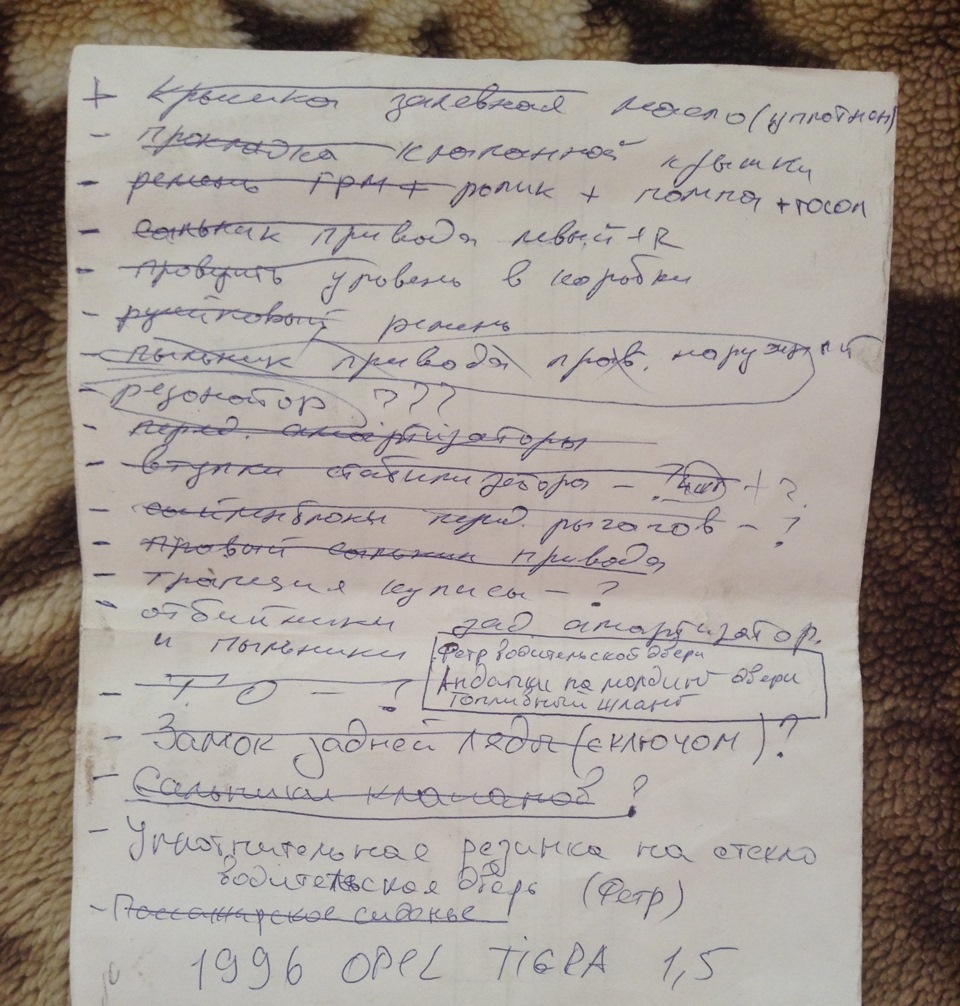 + Крышка залевная масло (уплотнен)
- прокладка клапанной крышки
- ремень ГРМ + ролик + помпа + тосол
- сальник привода левый + R
- проверить уровень в коробки
- ручейковый ремень
- пыльник привода прав. наружный
- резонатор ???
- перед. амартизаторы
- втулки стабилизатора - ? 4шт + ?
- сайленблоки перед. рычагов - ?
- правый сальник привода
- трапеция кулисы - ?
- отбийники зад амартизатор.
и пыльники
Фетр водительской двери
Андапци па молдинг двери
Топливный шланг
- Т О - ?
- Замок задней ляды (с ключом) ?
- Сальники клапанов ?
- Уплотнительная резинка на стекло
водительская дверь (Фетр)
- Пассажирское сиденье
1996 OPEL TIGRA 1,5